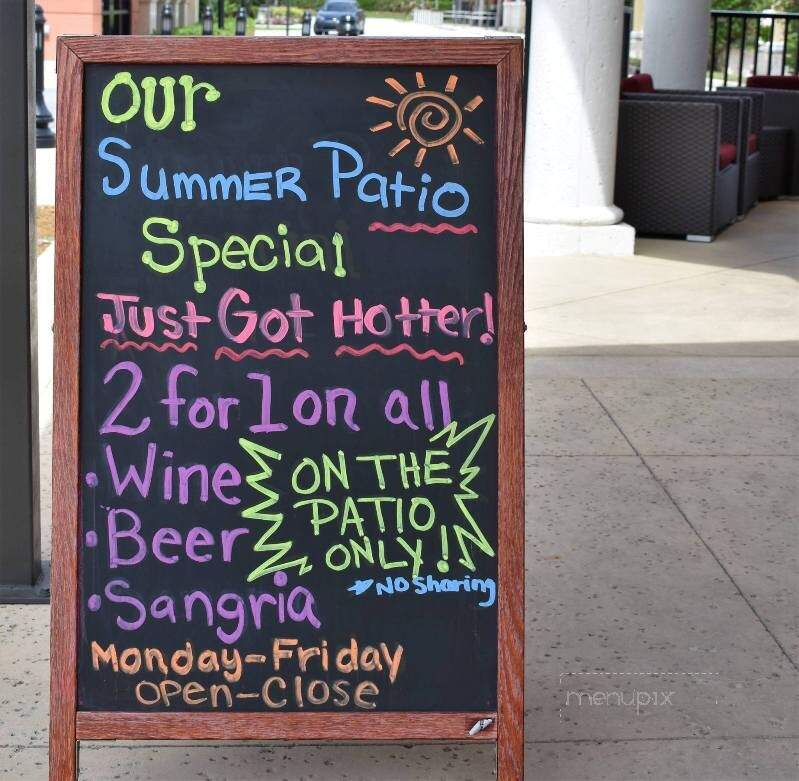 Our
Summer Patio
Special
Just Got Hotter!
2 for 1 on all
• Wine
• Beer
• Sangria
ON THE
PATIO
ONLY!
NO Sharing
Monday-Friday
Open-Close
menupix